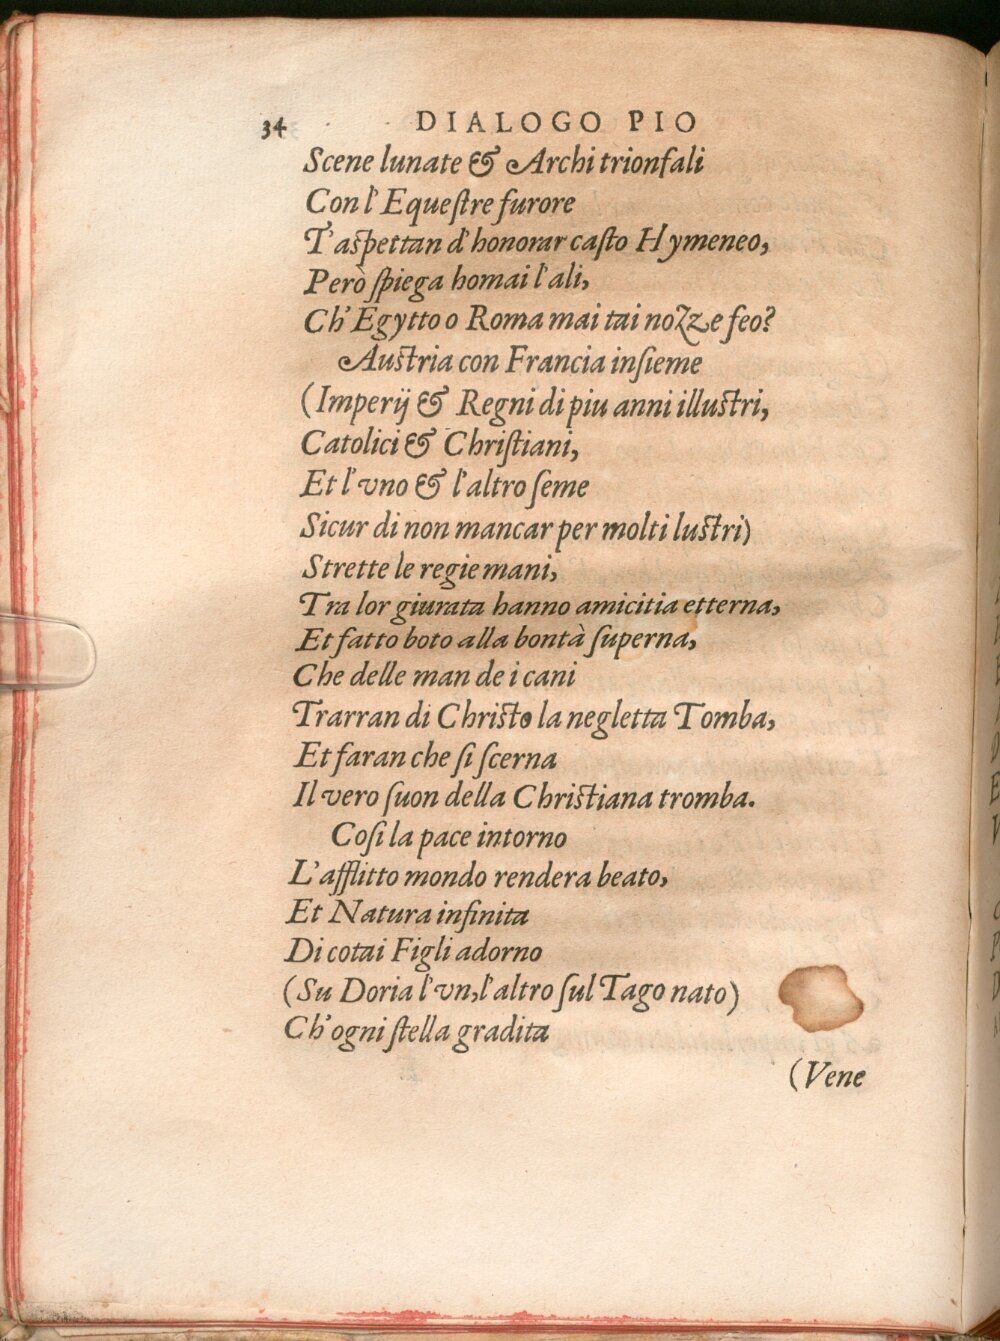 34 DIALOGO PIO
Scene lunate & Archi trionfali
Con l'Equestre furore
T'aspettan d'honorar casto Hymeneo,
Però spiega homai l'ali,
Ch'Egytto o Roma mai tai nozze feo?
Austria con Francia insieme
(Imperij & Regni di piu anni illustri,
Catolici & Christiani,
Et l'vno & l'altro seme
Sicur di non mancar per molti lustri)
Strette le regie mani,
Tra lor giurata hanno amicitia etterna,
Et fatto boto alla bontà superna,
Che delle man de i cani
Trarran di Christo la negletta Tomba,
Et faran che si scerna
Il vero suon della Christiana tromba.
Cosi la pace intorno
L'afflitto mondo rendera beato,
Et Natura infinita
Di cotai Figli adorno
(Su Doria l'vn, l'altro sul Tago nato)
Ch'ogni stella gradita
(Vene